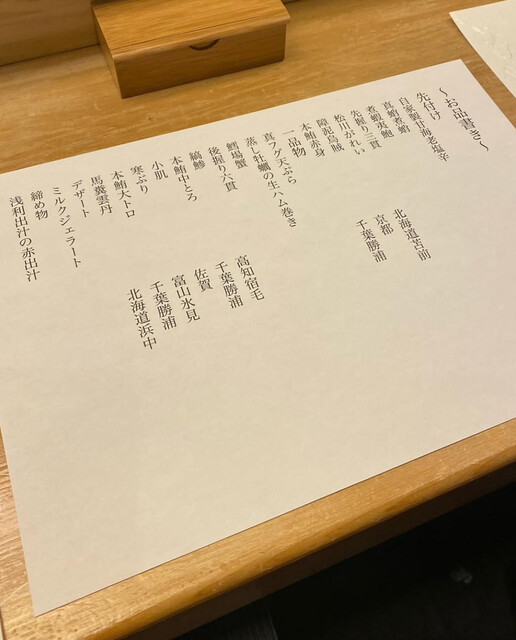 ～お品書き～
先付け
自家製甘海老塩辛
真蛸煮蛸
煮蝦夷鮑
先握り三貫
松川がれい 北海道苫前
障泥烏賊 京都
本鮪赤身 千葉勝浦
一品物
真フグ天ぷら
蒸し牡蠣の生ハム巻き
鱈場蟹
後握り六貫
縞鯵 高知宿毛
本鮪中とろ 千葉勝浦
小肌 佐賀
寒ぶり 富山氷見
本鮪大トロ 千葉勝浦
馬糞雲丹 北海道浜中
デザート
ミルクジェラート
締め物
浅利出汁の赤出汁